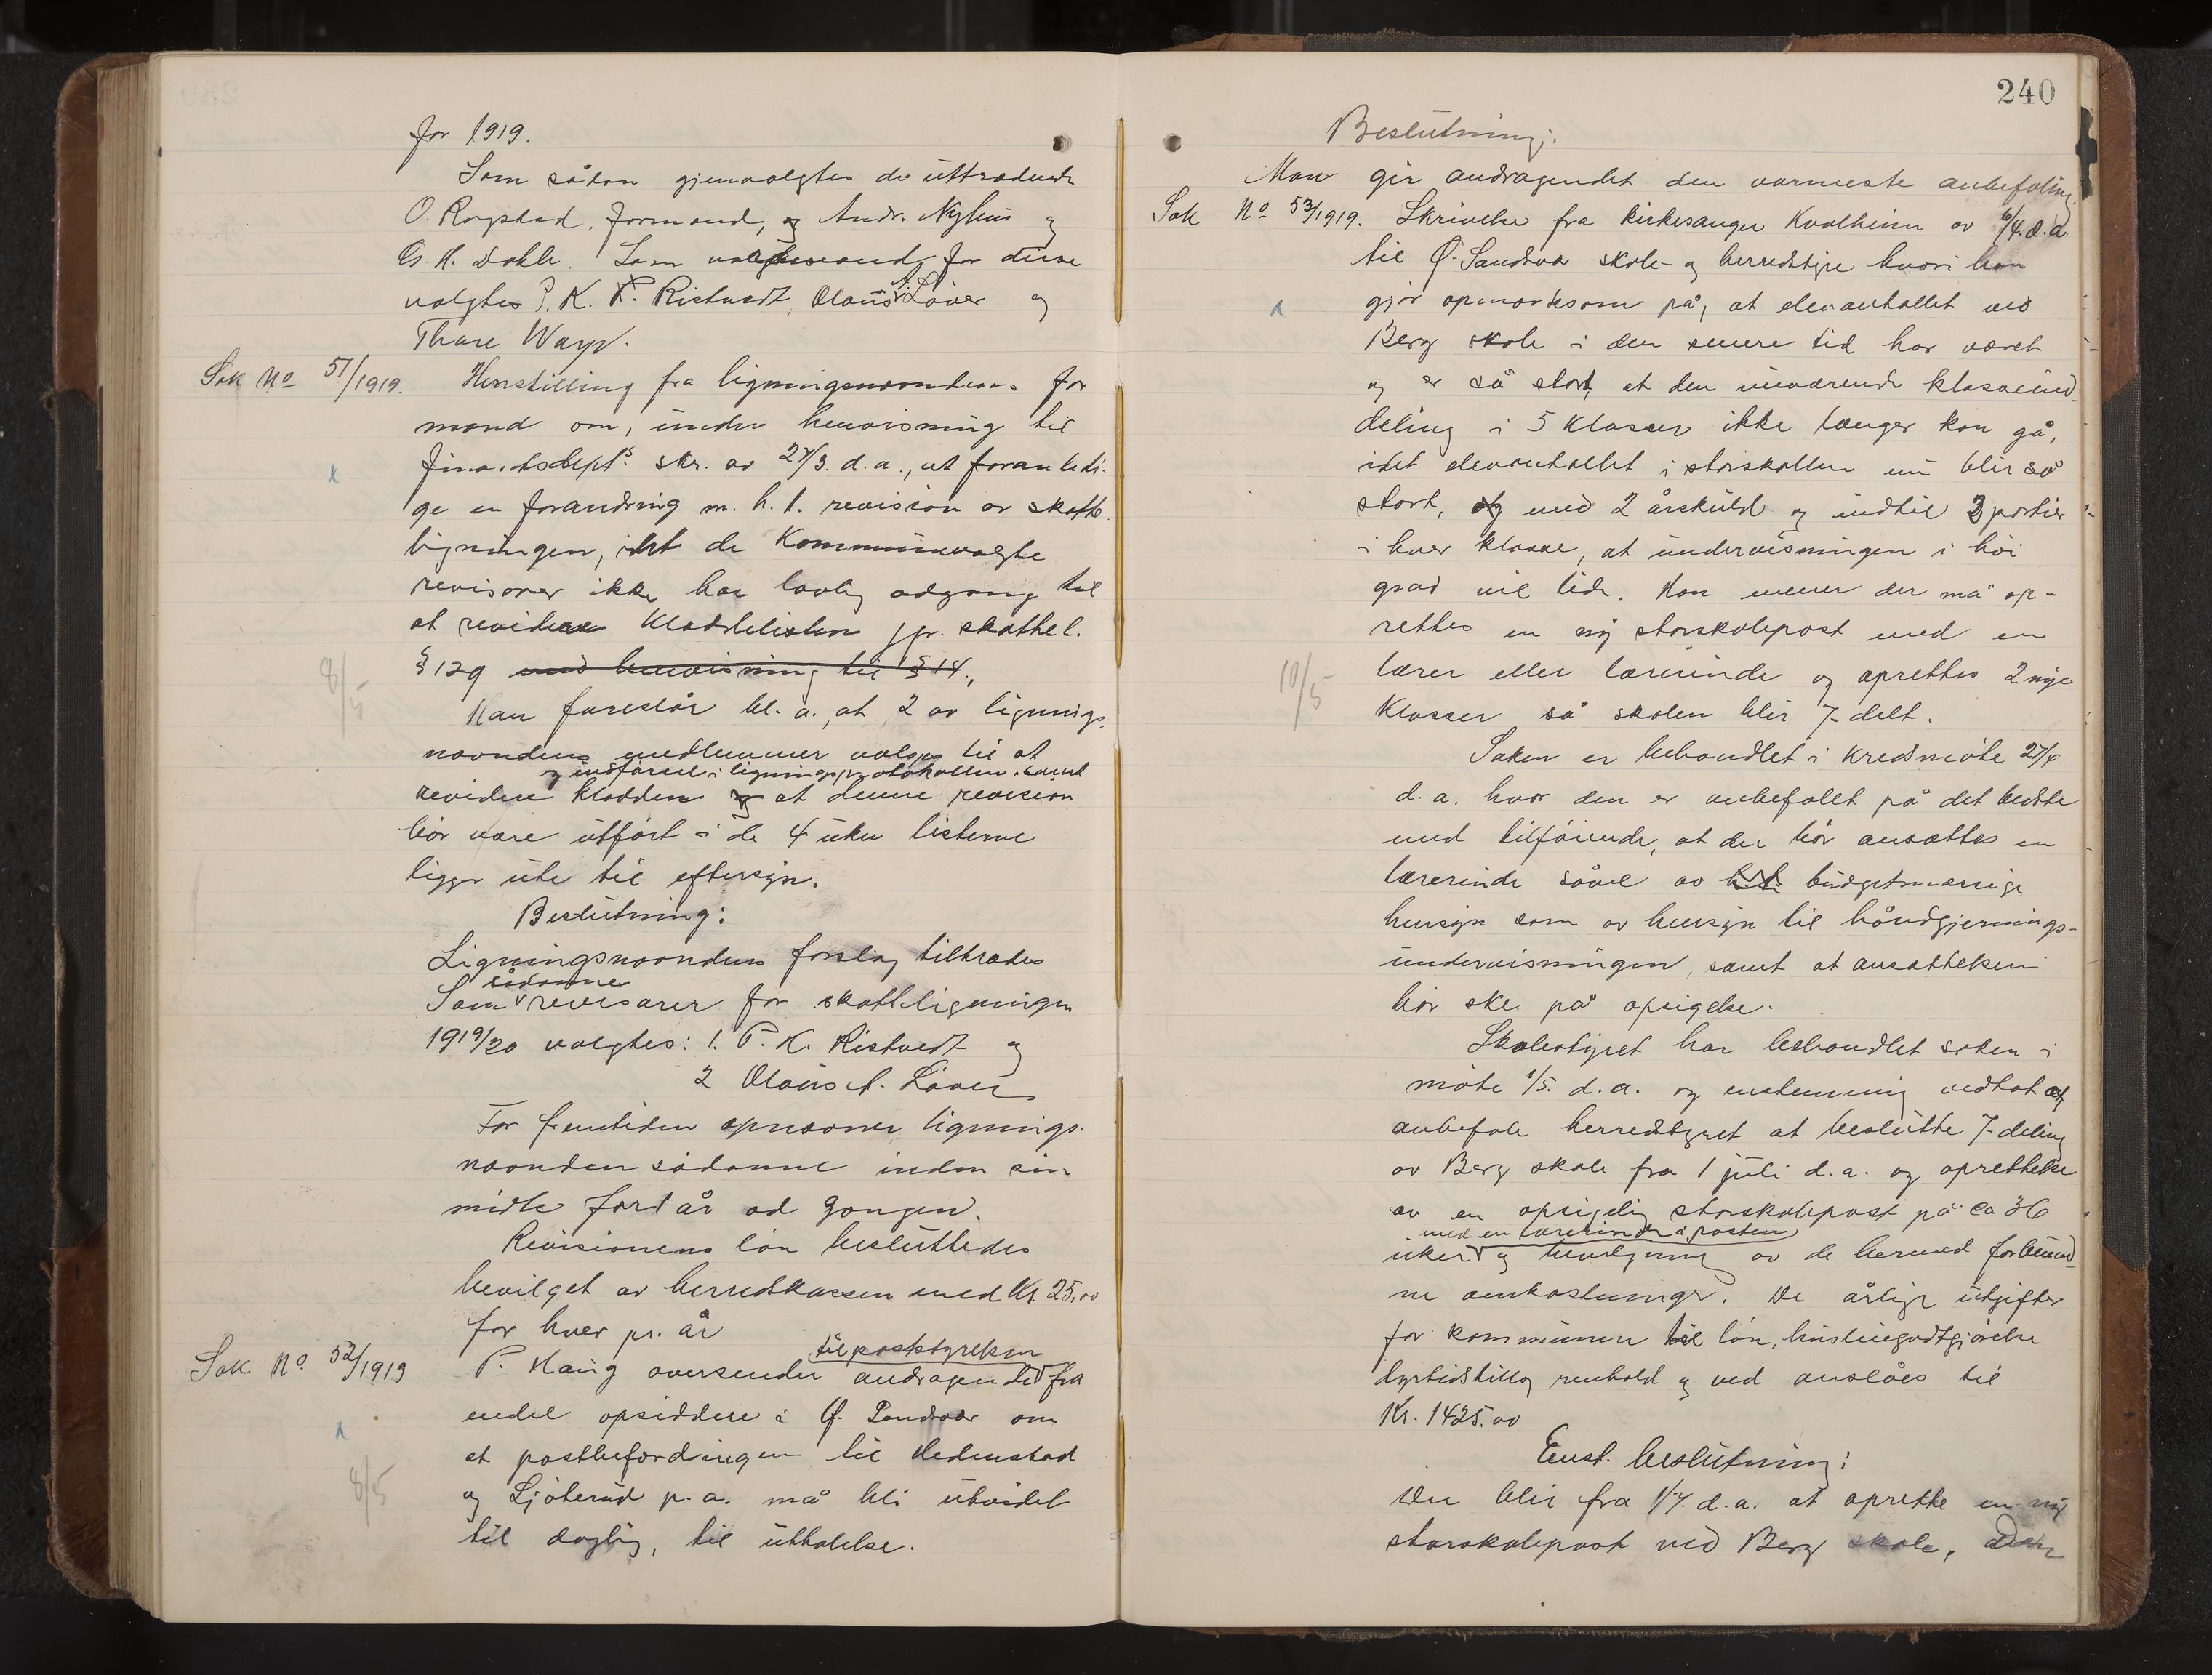 for 1919.
Som sådan gjenvalgtes de uttrædende
O. Rogstad, formand, og Andr. Nyhus og
G. H. Dahle. Som varamænd for disse
valgtes P. K. Ristvedt, Olaus A. Løver og
Thore
Sak No 51/1919. Henstilling fra ligningsnævndens for
mand om, under henvisning til
finantsdepts. skr. av 27/3. d.a., at foranledi-
ge en forandring m. h. t. revision av skatte
ligningen, idet de kommunevalgte
revisorer ikke har lovlig adgang til
at revidere kladdelisten jfr. skattel.
§ 129 med henvisning til § 14.,
Man foreslår bl. a., at 2 av lignings
nævndens medlemmer vælges til at
og indførsel i ligningsprotokollen. samt
revidere kladden og at denne revision
bør være utført i de 4 uker listerne
ligger ute til eftersyn.
Beslutning:
Ligningsnævndens forslag tiltrædes
sådanne
Som revisorer for skatteligningen
1919/20 valgtes: 1. P. K. Ristvedt og
2 Olaus A. Løver
For fremtiden opnævner lignings-
nævnden sådanne inden sin
midte for 1 år ad gangen.
Revisionens løn besluttedes
bevilget av herredskassen med Kr 25.00
for hver pr. år
Sak No. 52/1919
til poststyrelsen
P. Haug oversender andragende fra
endel opsiddere i Ø. Sandsvær om
at postbefordringen til Hedenstad
og Ljøterud p. a. må bli utvidet
til daglig, til uttalelse.
8/5
8/5
240
Beslutning:
Man gir andragendet den varmeste anbefaling.
Sak No 53/1919. Skrivelse fra kirkesanger Kvalheim av 6/4. d.a.
til Ø. Sandsvær skole- og herredstyre hvori han
gjør opmerksom på, at elevantallet ved
Berg skole i den senere tid har været
og er så stort, at den nuværende klasseind-
deling i 5 klasser ikke længer kan gå,
idet elevantallet i storskolen nu blir så
stort, med 2 årskuld og indtil 3 partier
i hver klasse, at undervisningen i høi
grad vil lide. Han mener der må op-
rettes en ny storskolepost med en
lærer eller lærerinde og oprettes 2 nye
klasser så skolen blir 7-delt.
10/5
Saken er behandlet i kredsmøte 27/4
d.a. hvor den er anbefalet på det bedste
med tilføiende, at der bør ansættes en
lærerinde såvel av budgetmæssige
hensyn som av hensyn til håndgjernings-
undervisningen, samt at ansættelsen
bør ske på opsigelse.
Skolestyret har behandlet saken i
møte 1/5. d.a. og enstemmig vedtat at
anbefale herredstyret at beslutte 7-deling
av Berg skole fra 1 juli d.a. og oprettelse
av en opsigelig storskolepost på ca 36
med en lærerinde i posten
uker og bevilgning av de hermed forbund-
ne omkostninger. De årlige utgifter
for kommunen til løn, husleiegodtgjørelse
dyrtidstillæg renhold og ved anslåes til
Kr. 1425.00
Enst. beslutning:
Der blir fra 1/7. d.a. at oprette en ny
storskolepost ved Berg skole, Den